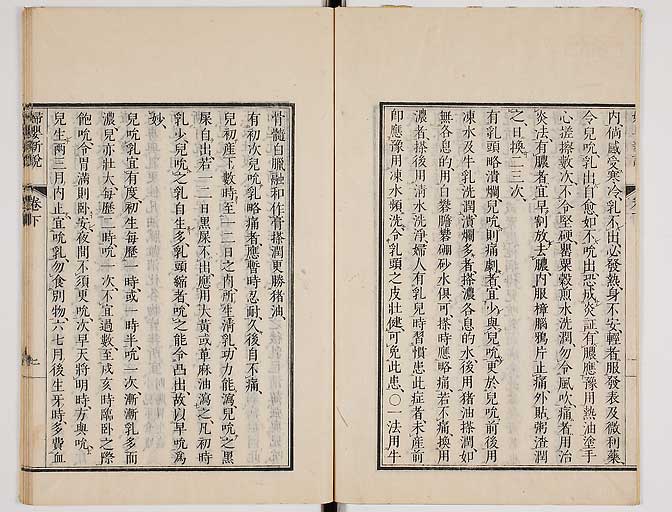 內倘感受寒冷乳不出必發熱身不安輕者服發表及微利藥、
令兒吮乳出自愈如不吮出恐成炎証有膿應豫用熱油塗手
心搓擦數次不令堅硬罌粟殼煎水洗潤勿令風吹痛者用治
炎法有膿者宜早割放去膿內服樟腦鴉片止痛外貼粥渣潤
之日換二三次、
有乳頭略潰爛兒吮則痛劇者宜少與兒吮更於兒吮前後用
凍水及牛乳洗潤潰爛多者搽濃各息的水後用猪油搽潤如
無各息的用白礬膽礬硼砂水俱可搽時應略痛若不痛換用
濃者搽後用淸水洗淨婦人有乳兒時習慣患此症者未產前
卽應豫用凍水頻洗令乳頭之皮壯健可免此患、〇一法用牛
骨髓白臘融和作膏搽潤更勝猪油、
有初次兒吮乳略痛者應暫時忍耐久後自不痛、
兒初產下數時至一二日之內所生淸乳功力能瀉兒吮之黑
屎自出若一二日黑屎不出應用大黃或萆麻油瀉之凡初時
乳少兒吮之乳自生多乳頭縮者吮之能令凸出故以早吮爲
妙、
兒吮乳宜有度初生每歷一時或一時半吮一次漸漸乳多而
濃兒亦壯大每歷二時吮一次不宜過數至戌亥時臨卧之際
飽吮令胃滿則卧安夜間不須更吮次早天將明時方與吮、
兒生兩三月內止宜吮乳勿食別物六七月後生牙時多費血
婦嬰新說
卷下